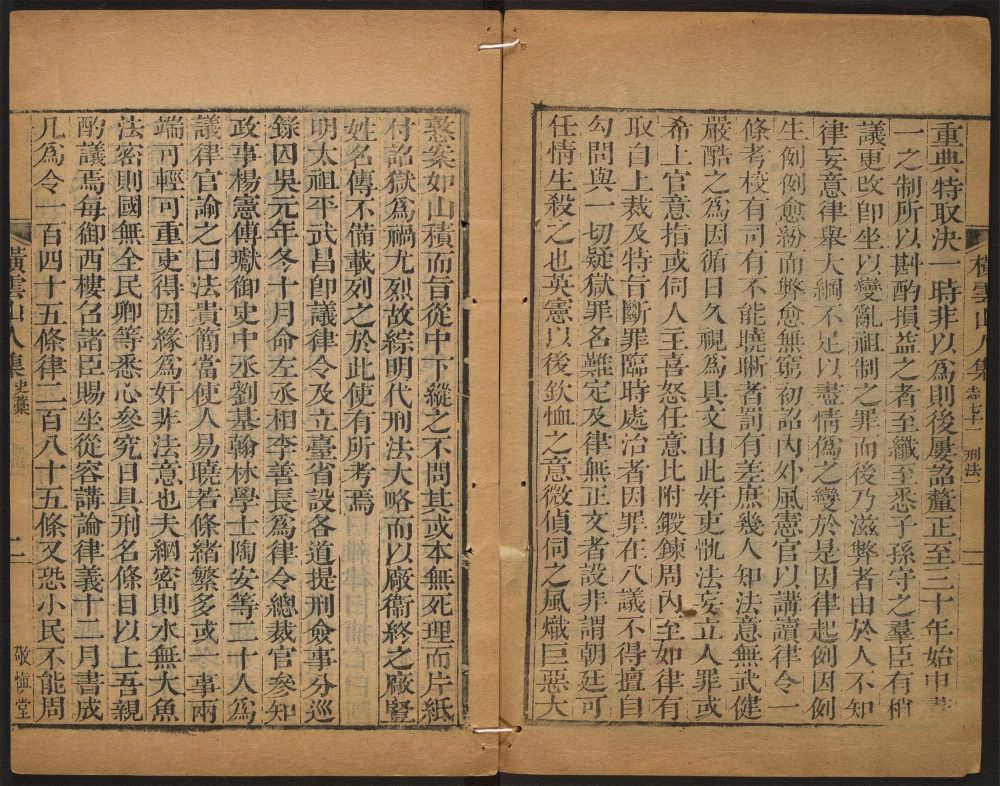 重典特取決一時非以爲則後屢詔釐正至三十年始申畫
一之制所以斟酌損益之者至纖至悉子孫守之羣臣有稍
議更改卽坐以變亂祖制之罪而後乃滋弊者由於人不知
律妄意律舉大綱不足以盡情僞之變於是因律起例因例
生例例愈紛而弊愈無窮初詔內外風憲官以講讀律令一
條考校有司有不能曉晰者罰有差庶幾人知法意無武健
嚴酷之爲因循日久視爲具文由此奸吏骩法妄立人罪或
希上官意指或伺人主喜怒任意比附鍛鍊周內至如律有
取自上裁及特旨斷罪臨時處治者因罪在八議不得擅自
勾問與一切疑獄罪名難定及律無正文者設非謂朝廷可
任情生殺之也英憲以後欽恤之意微偵伺之風熾巨惡大
橫雲山人集 志上 刑法 一
憝案如山積而旨從中下縱之不問其或本無死理而片紙
付詔獄爲禍尤烈故綜明代刑法大略而以廠衞終之廠豎
姓名傳不備載列之於此使有所考焉
明太祖平武昌卽議律令及立臺省設各道提刑僉事分巡
錄囚吳元年冬十月命左丞相李善長爲律令總裁官參知
政事楊憲傅瓛御史中丞劉基翰林學士陶安等二十人爲
議律官諭之曰法貴簡當使人易曉若條緒繁多或一事兩
端可輕可重吏得因緣爲奸非法意也夫網密則水無大魚
法密則國無全民卿等悉心參究日具刑名條目以上吾親
酌議焉每御西樓召諸臣賜坐從容講論律義十二月書成
凡爲令一百四十五條律二百八十五條又恐小民不能周
橫雲山人集 史藁 二 敬愼堂